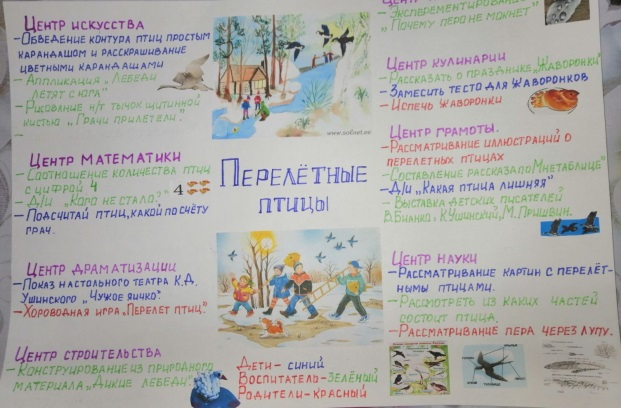 Центр искусства
- Обведение контура птиц простым
карандашом и расскрашивание
цветными карандашами
- Аппликация „Лебеди
летят с юга"
- Рисование н/т тычок щитинной
кистью „Грачи прилетели."
-
Центр математики
- Соотношение количества птиц
с цифрой 4
- Д/и „Кого не стало?"
4
- Подсчитай птиц, какой по счёту
грач.
Центр драматизации
- Показ настольного театра К.Д.
Ушинского „Чужое яичко".
- Хороводная игра „Перелет птиц."
Центр строительства
- Конструирование из природного
материала „Дикие лебеди".
www.solnet.ee
Перелётные
птицы
Дети - синий
Воспитатель - зелёный
Родители - красный
- Эксперементирование
„Почему перо не мокнет"
Центр кулинарии
- Рассказать о празднике „Жаворонки"
- Замесить тесто для жаворонков
- Испечь жаворонки
Центр грамоты.
- Рассматривание иллюстраций о
перелетных птицах
- Составление рассказа по Мнетаблице"
- Д/и „Какая птица лишняя"
- Выставка детских писателей
В.Бианки, К.Ушинский, М.Пришвин.
Центр науки
- Рассматривание картин с перелёт-
ными птицами.
- Рассмотреть из каких частей
состоит птица.
- Рассматривание пера через лупу.